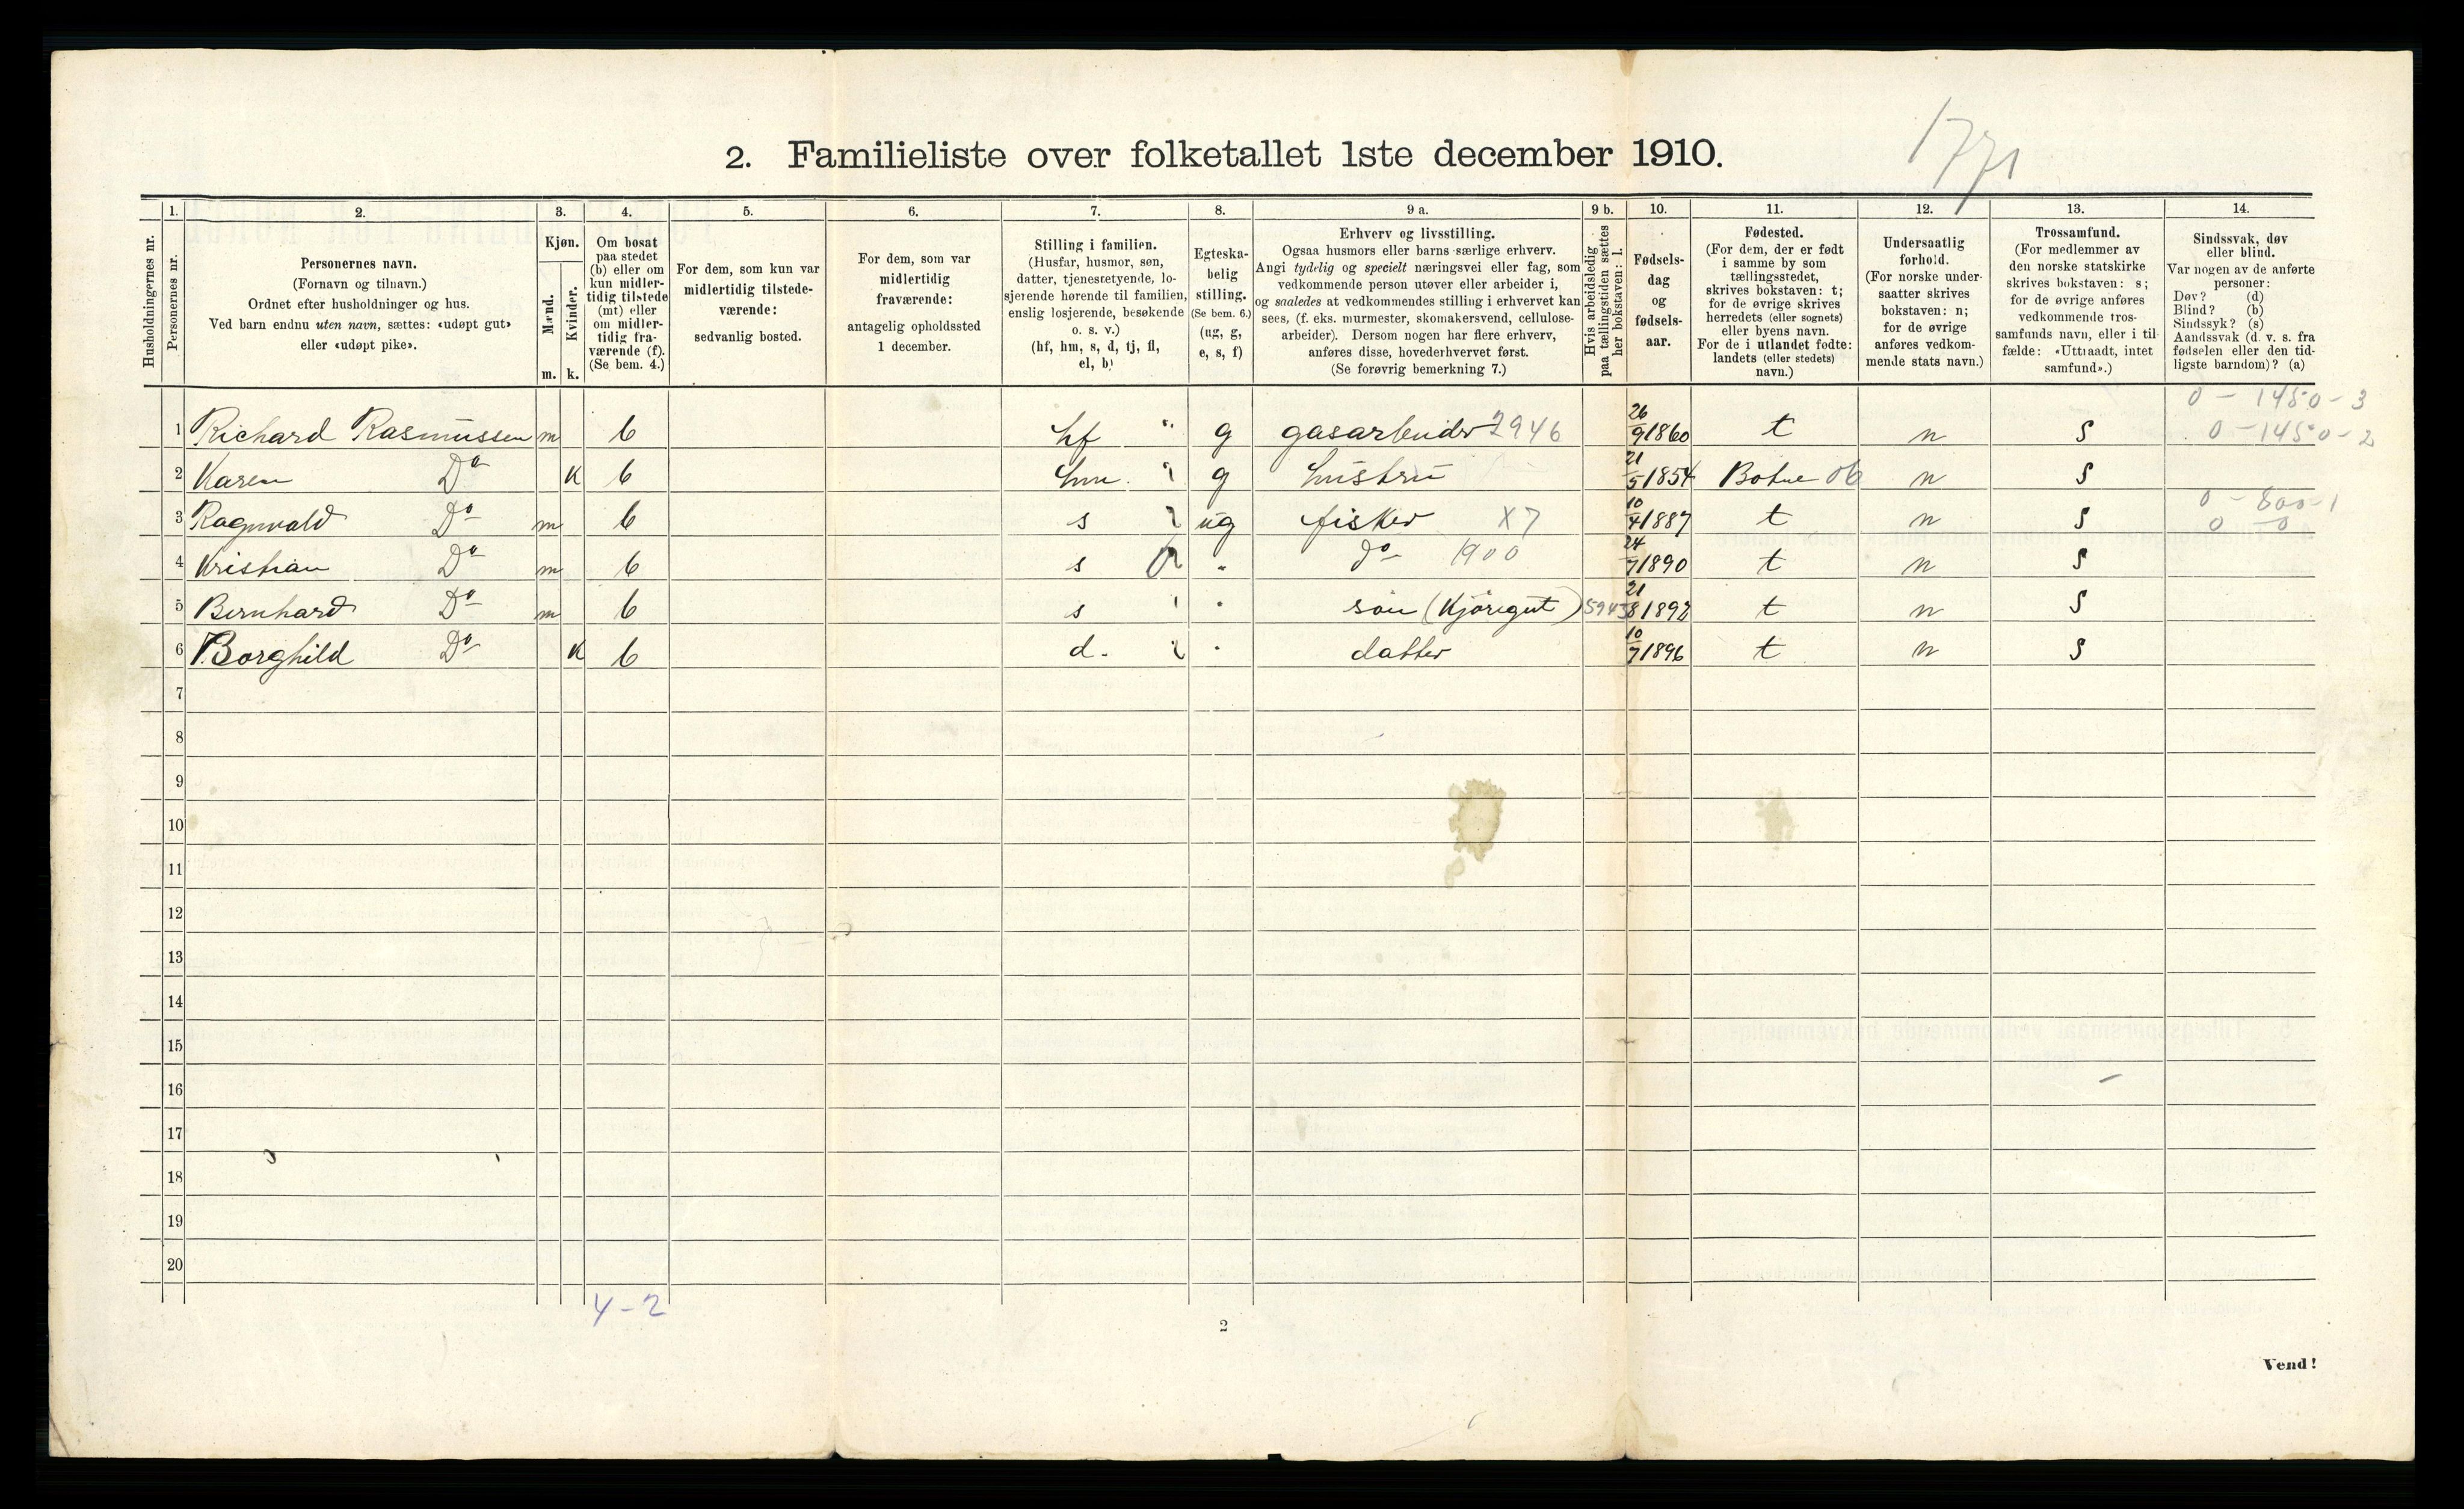 1771
2. Familieliste over folketallet 1ste december 1910.
Husholdningernes nr.
1. Personernes nr.
2. Personernes navn. (Fornavn og tilnavn.) Ordnet efter husholdninger og hus. Ved barn endnu uten navn, sættes: «udøpt gut» eller «udøpt pike».
3. Kjøn. Mænd. m. Kvinder. k.
4. Om bosat paa stedet (b) eller om kun midlertidig tilstede (mt) eller om midlertidig fraværende (f). (Se bem. 4.)
5. For dem, som kun var midlertidig tilstedeværende: sedvanlig bosted.
6. For dem, som var midlertidig fraværende: antagelig opholdssted 1 december.
7. Stilling i familien. (Husfar, husmor, søn, datter, tjenestetyende, losjerende hørende til familien, enslig losjerende, besøkende o. s. v.) (hf, hm, s, d, tj, fl, el, b)
8. Egteskabelig stilling. (Se bem. 6.) (ug, g, e, s, f)
9 a. Erhverv og livsstilling. Ogsaa husmors eller barns særlige erhverv. Angi tydelig og specielt næringsvei eller fag, som vedkommende person utøver eller arbeider i, og saaledes at vedkommendes stilling i erhvervet kan sees, (f. eks. murmester, skomakersvend, cellulosearbeider). Dersom nogen har flere erhverv, anføres disse, hovederhvervet først. (Se forøvrig bemerkning 7.)
9 b. Hvis arbeidsledig paa tællingstiden sættes her bokstaven: l.
10. Fødselsdag og fødselsaar.
11. Fødested. (For dem, der er født i samme by som tællingsstedet, skrives bokstaven: t; for de øvrige skrives herredets (eller sognets) eller byens navn. For de i utlandet fødte: landets (eller stedets) navn.)
12. Undersaatlig forhold. (For norske undersaatter skrives bokstaven: n; for de øvrige anføres vedkommende stats navn.)
13. Trossamfund. (For medlemmer av den norske statskirke skrives bokstaven: s; for de øvrige anføres vedkommende trossamfunds navn, eller i tilfælde: «Uttraadt, intet samfund».)
14. Sindssvak, døv eller blind. Var nogen av de anførte personer: Døv? (d) Blind? (b) Sindssyk? (s) Aandssvak (d. v. s. fra fødselen eller den tidligste barndom)? (a)
0 - 1450 - 3
1 Richard Rasmussen m b hf g gasarbeider 2946 26/9 1860 t n s 0 - 1450 - 2
2 Karen Do k b hm g hustru 21/5 1854 Botne 06 n s
3 Ragnvald Do m b s ug fisker X7 10/4 1887 t n s 0 - 800 - 1
0 - 0
4 Kristian Do m b s " do 1900 24/7 1890 t n s
5 Bernhard Do m b s " søn (Kjøregut) 5943 21/8 1892 t n s
6 Borghild Do k b d. " datter 10/7 1896 t n s
7
8
9
10
11
12
13
14
15
16
17
18
19
20
4 - 2
2
Vend!